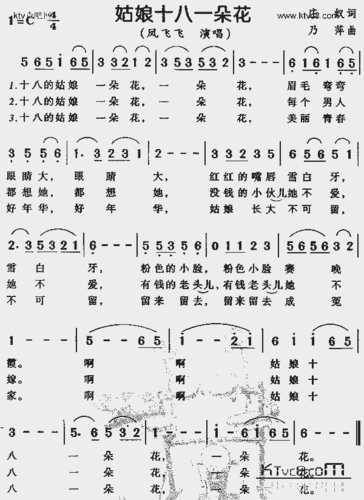 姑娘十八一朵花
(凤飞飞 演唱)
庄奴词
乃萍曲
1=C 4/4
5 6 5 1 6 5 | 3 5 2 3 2 1 | 6 1 6 1 6 5 | 1 6 1 6 5 |
1.十八的姑娘 一朵花, 一朵花, 眉毛弯弯
2.十八的姑娘 一朵花, 一朵花, 每个男人
3.十八的姑娘 一朵花, 一朵花, 美丽青春
3 5 5 6 | 1· 3 2 3 1 | 2 - - - | 3 5 5 6 5 6 5 |
眼睛大, 眼睛大, 红红的嘴唇雪白牙,
都想她, 都想她, 没钱的小伙儿她不爱,
好年华, 好年华, 姑娘长大不可留,
2· 3 5 3 2 1 | 6 - - - | 5· 3 5 6 5· | 0 1 1 2 3 | 5 6 5 6 3 2 |
雪白牙, 粉色的小脸, 粉色小脸赛晚
她不爱, 有钱的老头儿, 有钱老头儿她不
不可留, 留来留去, 留来留去成冤
1 - - - | 5 - - 6 5 | 1 - - 2 1 | 6 1 6 5 |
霞。 啊 啊 姑娘十
嫁。 啊 啊 姑娘十
家。 啊 啊 姑娘十
3 - - 5 | 2· 6 5 3 2 | 1 - - 6 | 5· 6 1 6 | 5 - - - ‖
八 一朵花, 一朵花。
八 一朵花, 一朵花。
八 一朵花, 一朵花。